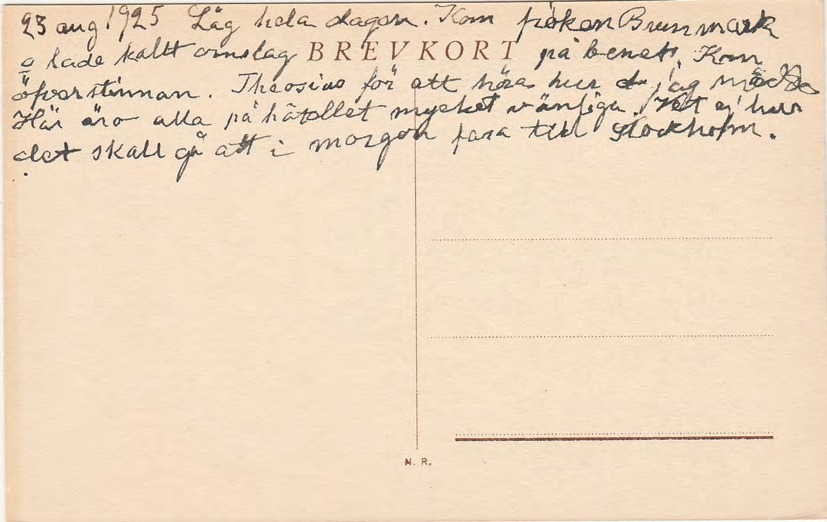 23 aug. 1925 Låg hela dagen. Kom fröken Brunmark
o lade kallt omslag BREVKORT på benet. Kom
öfverstinnan. Theosius för att höra hur jag mådde
Här äro alla på hotellet mycket vänliga. Vet ej hur
det skall gå att i morgon fara till Stockholm.
N. R.